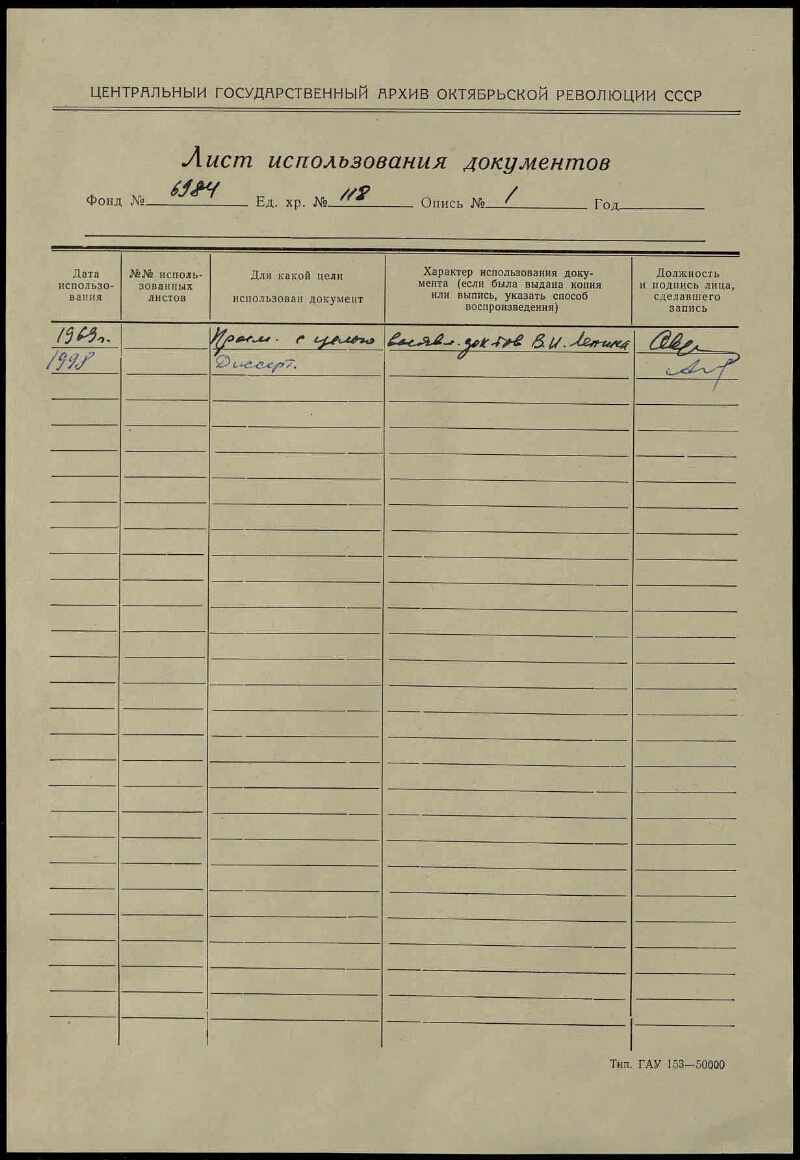 ЦЕНТРАЛЬНЫЙ ГОСУДАРСТВЕННЫЙ АРХИВ ОКТЯБРЬСКОЙ РЕВОЛЮЦИИ СССР
Лист использования документов
Фонд № 6984 Ед. хр. № 118 Опись № 1 Год
Дата использования
№№ использованных листов
Для какой цели использован документ
Характер использования документа (если была выдана копия или выпись, указать способ воспроизведения)
Должность и подпись лица, сделавшего запись
1969г. Просм. с целью выявл. док-тов В.И. Ленина
1998 Диссерт.
Тип. ГАУ 153—50000